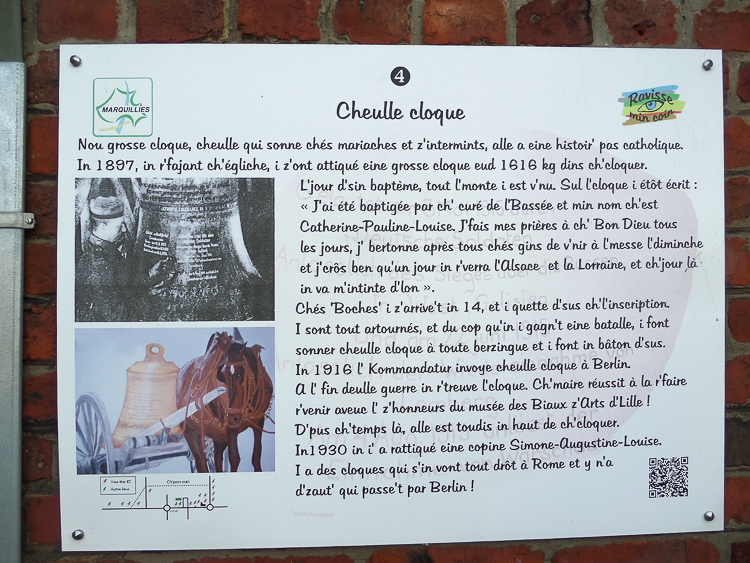 4
MARQUILLIES
Ravisse
min coin
Cheulle cloque
Nou grosse cloque, cheulle qui sonne chés mariaches et z'intermints, alle a eine histoir' pas catholique.
In 1897, in r'fajant ch'égliche, i z'ont attiqué eine grosse cloque eud 1616 kg dins ch'cloquer.
L'jour d'sin baptème, tout l'monte i est v'nu. Sul l'cloque i étôt écrit :
« J'ai été baptigée par ch' curé de l'Bassée et min nom ch'est
Catherine-Pauline-Louise. J'fais mes prières à ch' Bon Dieu tous
les jours, j' bertonne après tous chés gins de v'nir à l'messe l'diminche
et j'crôs ben qu'un jour in r'verra l'Alsace et la Lorraine, et ch'jour là
in va m'intinte d'lon ».
Chés 'Boches' i z'arrive't in 14, et i quette d'sus ch'l'inscription.
I sont tout artournés, et du cop qu'in i gagn't eine batalle, i font
sonner cheulle cloque à toute berzingue et i font in bâton d'sus.
In 1916 l' Kommandatur invoye cheulle cloque à Berlin.
A l' fin deulle guerre in r'treuve l'cloque. Ch'maire réussit à la r'faire
r'venir aveuc l' z'honneurs du musée des Biaux z'Arts d'Lille !
D'pus ch'temps là, alle est toudis in haut de ch'cloquer.
In1930 in i' a rattiqué eine copine Simone-Augustine-Louise.
I a des cloques qui s'in vont tout drôt à Rome et y n'a
d'zaut' qui passe't par Berlin !